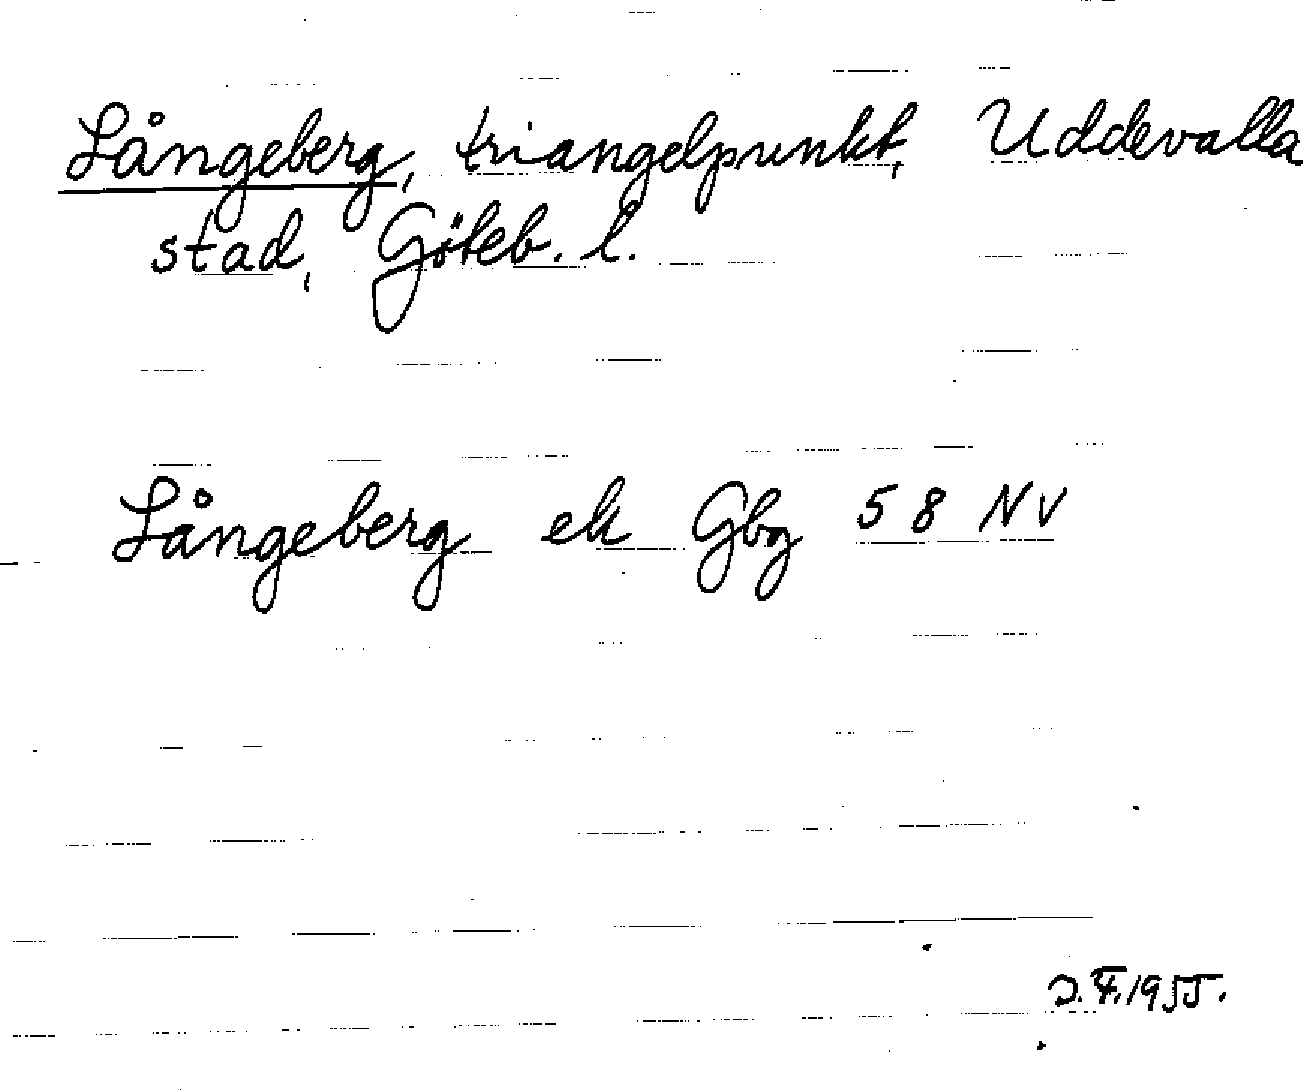 Långeberg, triangelpunkt, Uddevalla
stad, Göteb. l.
Långeberg ek Gbg 58 NV
J. F. 1955.